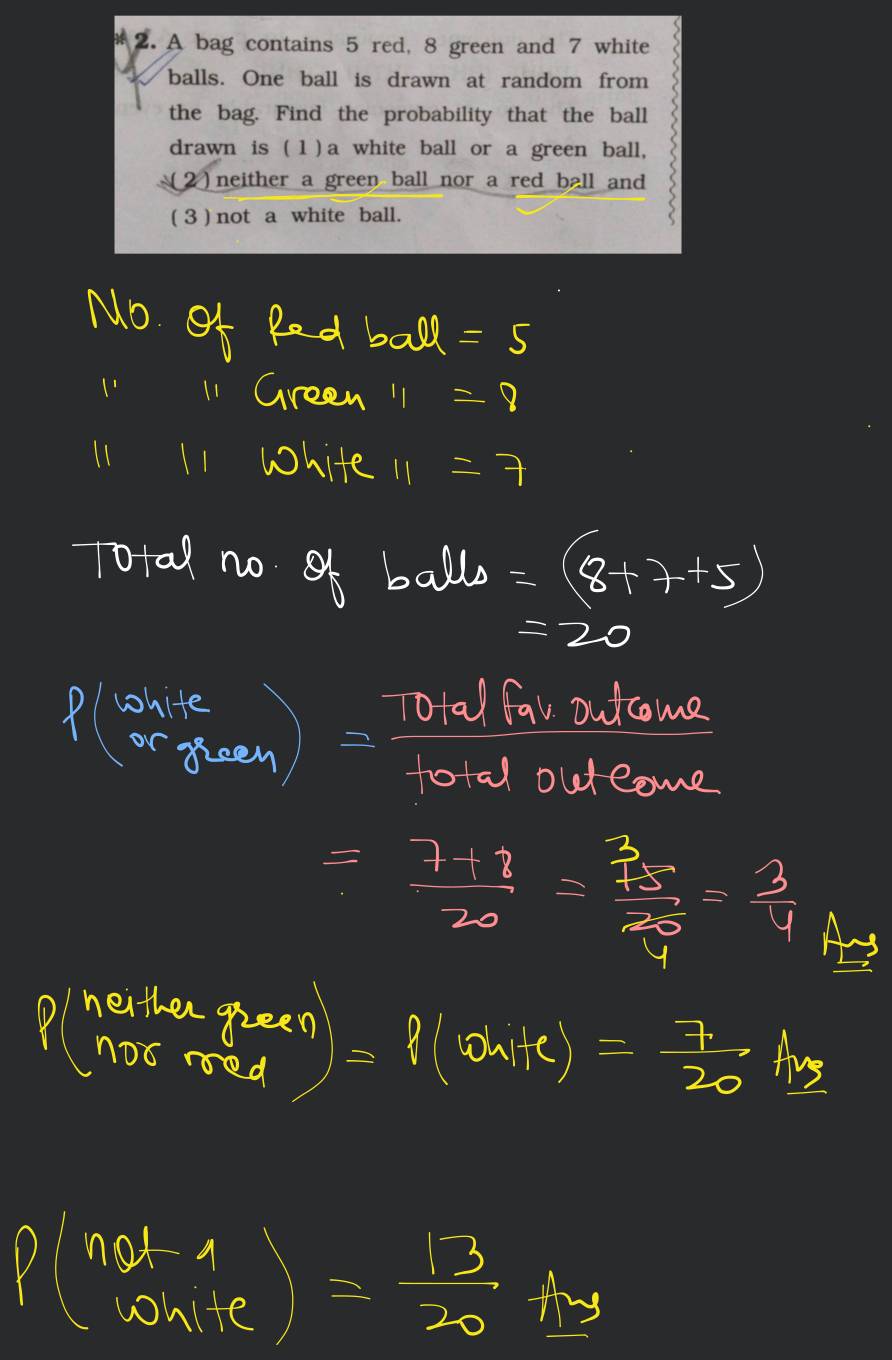 * 2. A bag contains 5 red, 8 green and 7 white
balls. One ball is drawn at random from
the bag. Find the probability that the ball
drawn is (1) a white ball or a green ball,
(2) neither a green ball nor a red ball and
(3) not a white ball.
No. of Red ball = 5
" " Green " = 8
" " White " = 7
Total no. of balls = (8+7+5)
= 20
P(white or green) = Total fav. outcome / total outcome
= 7+8/20 = 15/20 = 3/4 Ans
3
4
P(neither green nor red) = P(white) = 7/20 Ans
P(not a white) = 13/20 Ans